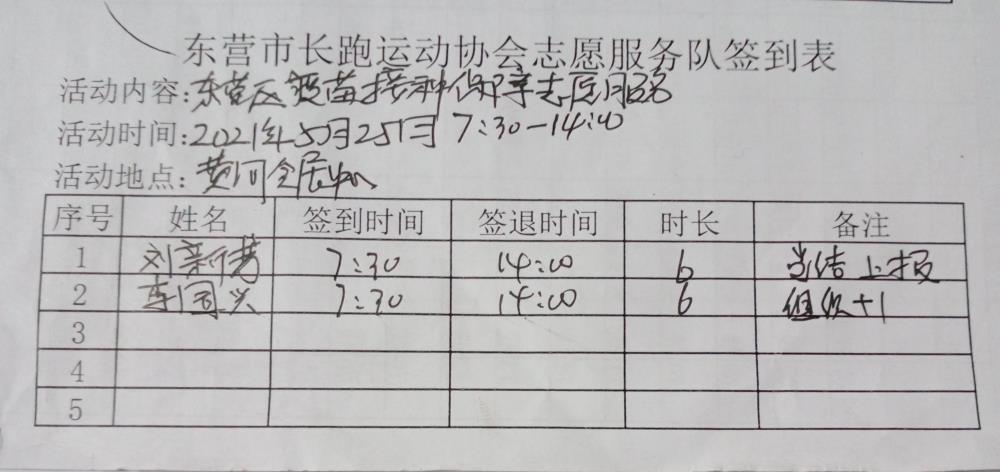 东营市长跑运动协会志愿服务队签到表
活动内容:东营区疫苗接种保障志愿服务
活动时间:2021年5月25日 7:30-14:00
活动地点:黄河全居中心
序号 姓名 签到时间 签退时间 时长 备注
1 刘新芳 7:30 14:00 6 总结上报
2 李国兴 7:30 14:00 6 组织+1
3
4
5